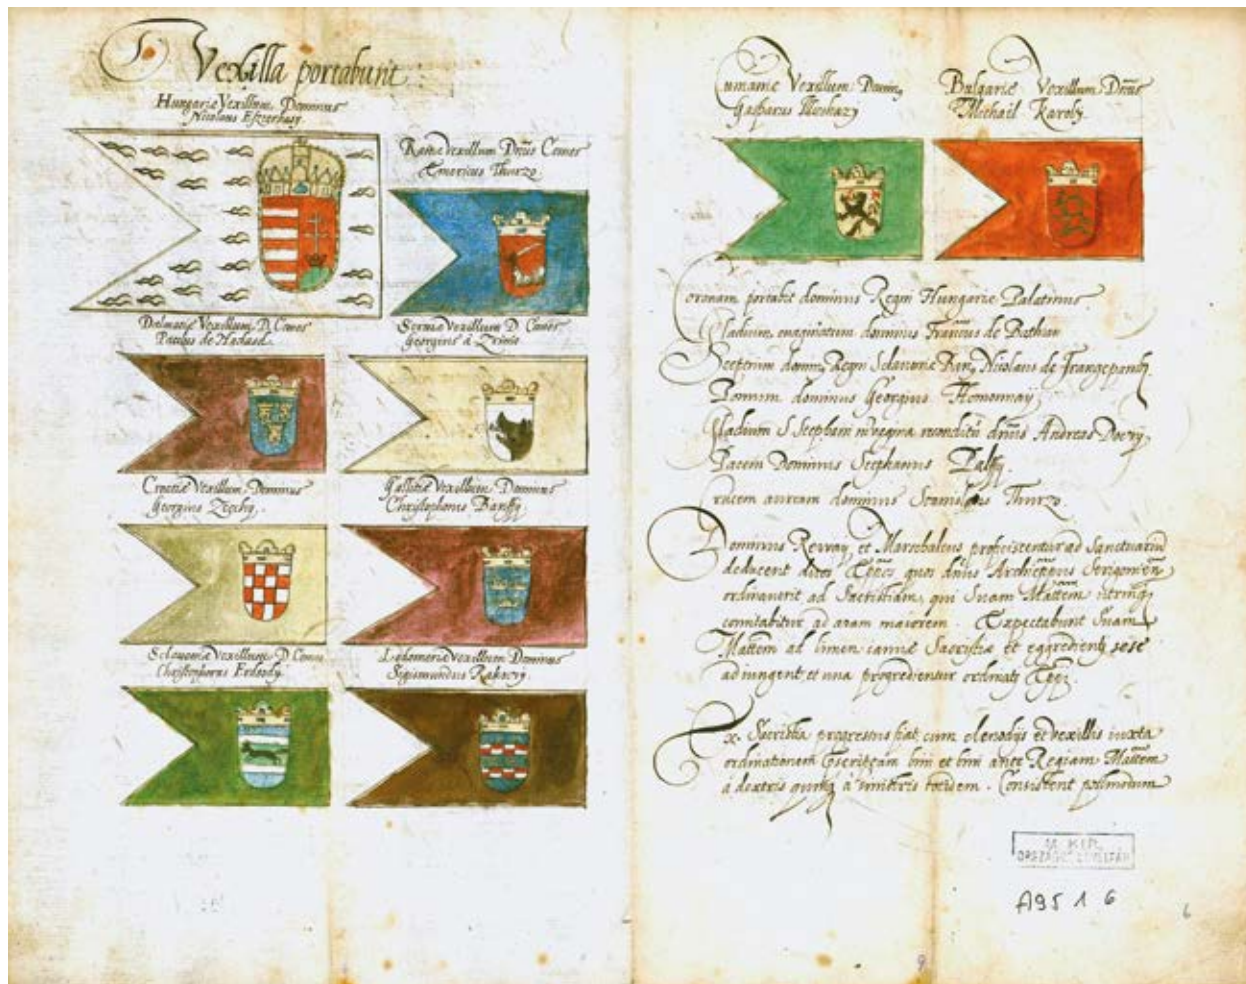 Vexilla portabunt
Hungariæ Vexillum Dominus
Nicolaus Eszterhasy
Rasciæ Vexillum Dn̄s Comes
Emericus Thurzo
Dalmatiæ Vexillum D. Comes
Paulus de Nadasd
Serviæ Vexillum D. Comes
Georgius à Zrinio
Croatiæ Vexillum Dominus
Georgius Zechy
Gallitiæ Vexillum Dominus
Christophorus Banffy
Sclavoniæ Vexillum D. Comes
Christophorus Erdeody
Lodomeriæ Vexillum Dominus
Sigismundus Rakoczy
Cumaniæ Vexillum Domin,
Gasparus Illieshazy
Bulgariæ Vexillum Dn̄s
Michaël Karoly
Coronam portabit dominus Regni Hungariæ Palatinus
Gladium evaginatum dominus Franciscus de Bathian
Sceptrum domin, Regni Sclavoniæ Ban, Nicolaus de Frangepanibus
Pomum dominus Georgius Homonnay
Gladium S Stephani in vagina reconditū dn̄us Andreas Doczy
Pacem Dominus Stephanus Palffy
Crucem auream dominus Stanislaus Thurzo
Dominus Revay, et Marschalcus proficiscentur ad Sanctuariū
deducent duos Ep̄pos quos dn̄us Archiep̄pus Strigonien̄
ordinaverit ad Sacristiam, qui Suam Mattem utrinq,
comitabitur ad aram maiorem. Expectabunt Suam
Mattem ad limen ianuæ Sacristiæ et egredienti sese
adiungent, et una progredientur ordinati Ep̄pi.
Ex Sacristia progressus fiat cum clenodijs et vexillis iuxta
ordinationem bini et bini ante Regiam Mattem
à dextris quinq, à sinistris totidem. Consistent
M. KIR.
ORSZÁGOS LEVÉLTÁR
A95 1 6
6
9